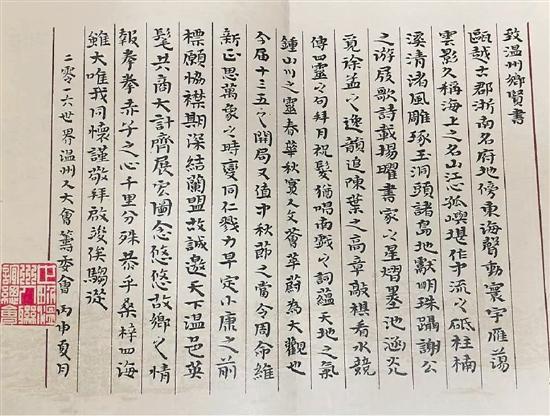 致温州鄉賢書
甌越古郡浙南名府地傍東海聲動寰宇雁蕩
雲影久稱海上之名山江心孤嶼堪作中流之砥柱楠
溪清渚風雕琢玉洞頭諸島地獻明珠躡謝公
之游屐歌詩載揚曜書家之星熠墨池涵光
覓徐孟之逸韻追陳葉之高章敲棋看水競
傳四靈之句拜月祝髮猶唱南戲之詞蘊天地之氣
鍾山川之靈春華秋實人文薈萃蔚為大觀也
今届十三五之開局又值中秋節之當令周命維
新正思萬象之時變同仁戮力早定小康之前
標願協襟期深結蘭盟故誠邀天下温邑英
髦共商大計齊展宏圖念悠悠故鄉之情
報拳拳赤子之心千里分殊恭乎桑梓四海
雖大唯我同懷謹敬拜啟竢俟騶從
二零一六世界温州人大會籌委會 丙申夏月